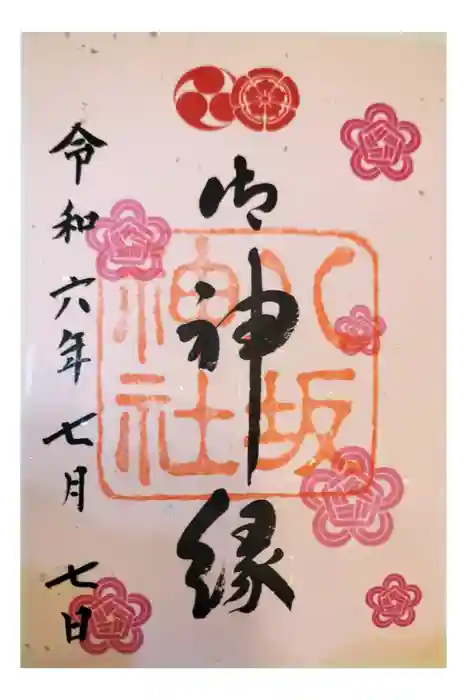 御神縁
八坂
神社
令和六年七月七日